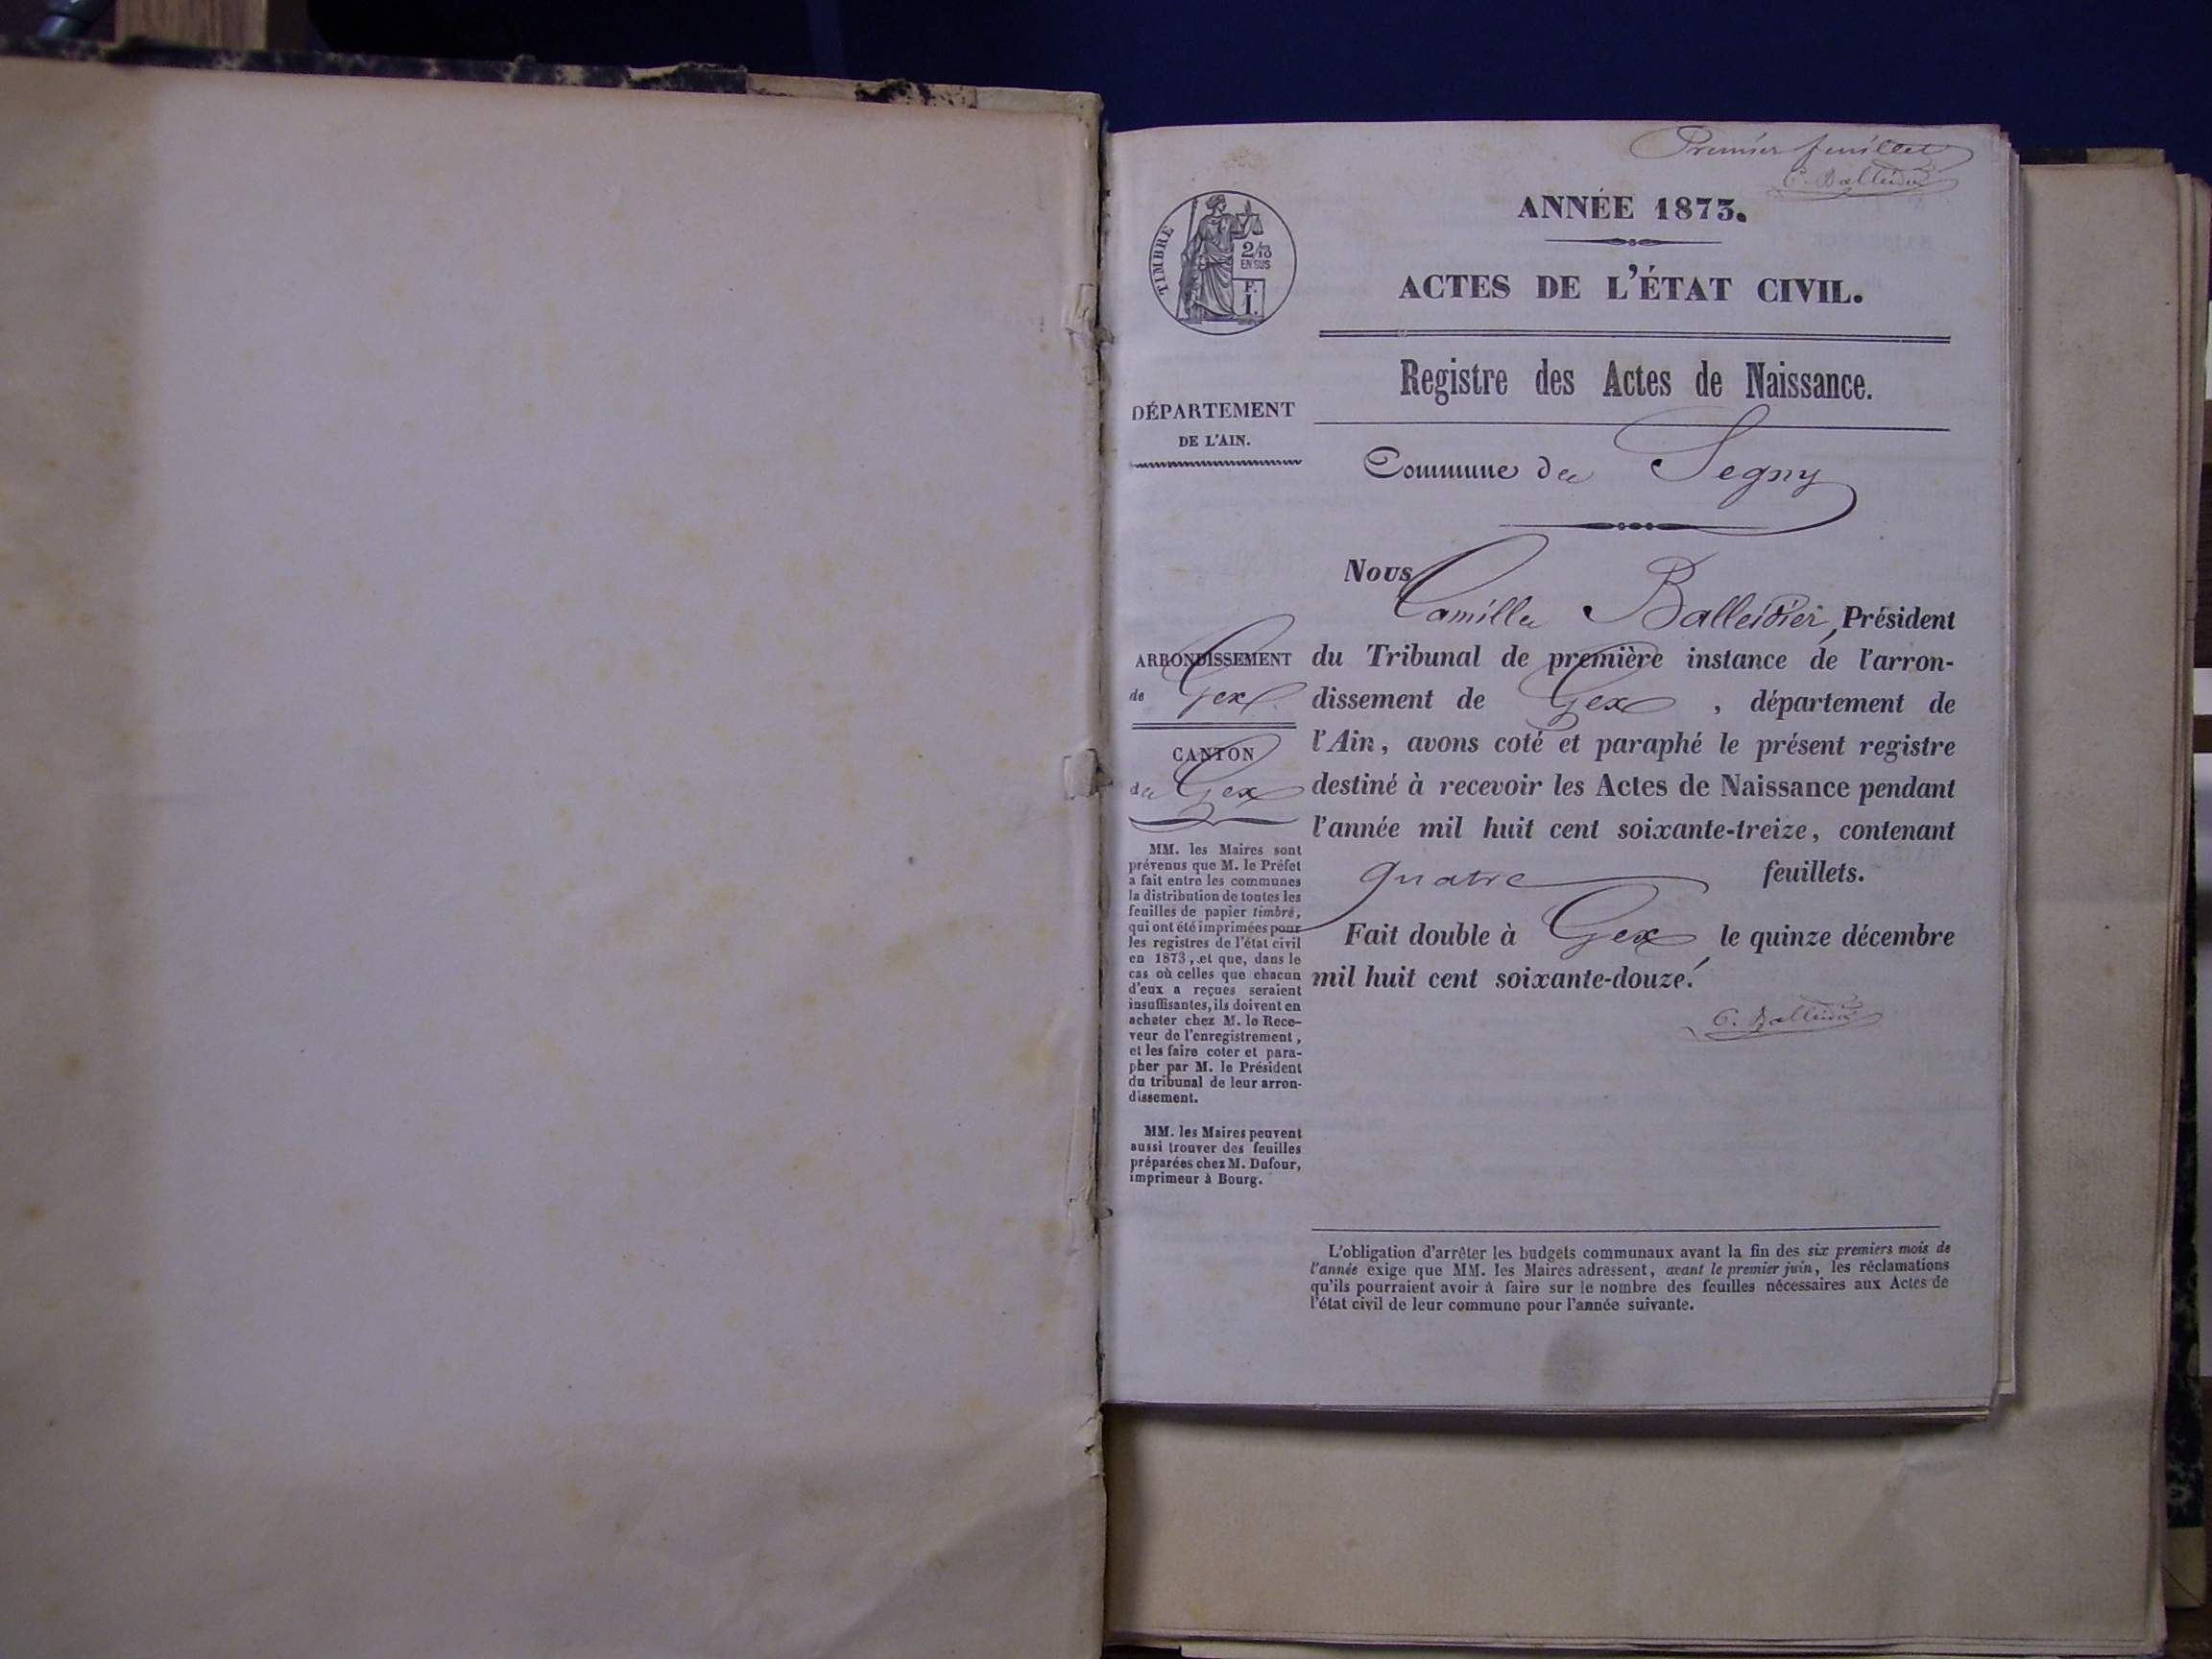 Premier feuillet
C. Balleidier
ANNÉE 1873.
TIMBRE
2/10
EN SUS
F.
1.
ACTES DE L'ÉTAT CIVIL.
Registre des Actes de Naissance.
DÉPARTEMENT
DE L'AIN.
Commune de Segny
Nous
Camille Balleidier, Président
du Tribunal de première instance de l'arron-
dissement de Gex, département de
l'Ain, avons coté et paraphé le présent registre
destiné à recevoir les Actes de Naissance pendant
l'année mil huit cent soixante-treize, contenant
quatre feuillets.
Fait double à Gex, le quinze décembre
mil huit cent soixante-douze.
C. Balleidier
ARRONDISSEMENT
de Gex
CANTON
de Gex
MM. les Maires sont
prévenus que M. le Préfet
a fait entre les communes
la distribution de toutes les
feuilles de papier timbré,
qui ont été imprimées pour
les registres de l'état civil
en 1873, et que, dans le
cas où celles que chacun
d'eux a reçues seraient
insuffisantes, ils doivent en
acheter chez M. le Rece-
veur de l'enregistrement,
et les faire coter et para-
pher par M. le Président
du tribunal de leur arron-
dissement.
MM. les Maires peuvent
aussi trouver des feuilles
préparées chez M. Dufour,
imprimeur à Bourg.
L'obligation d'arrêter les budgets communaux avant la fin des six premiers mois de
l'année exige que MM. les Maires adressent, avant le premier juin, les réclamations
qu'ils pourraient avoir à faire sur le nombre des feuilles nécessaires aux Actes de
l'état civil de leur commune pour l'année suivante.